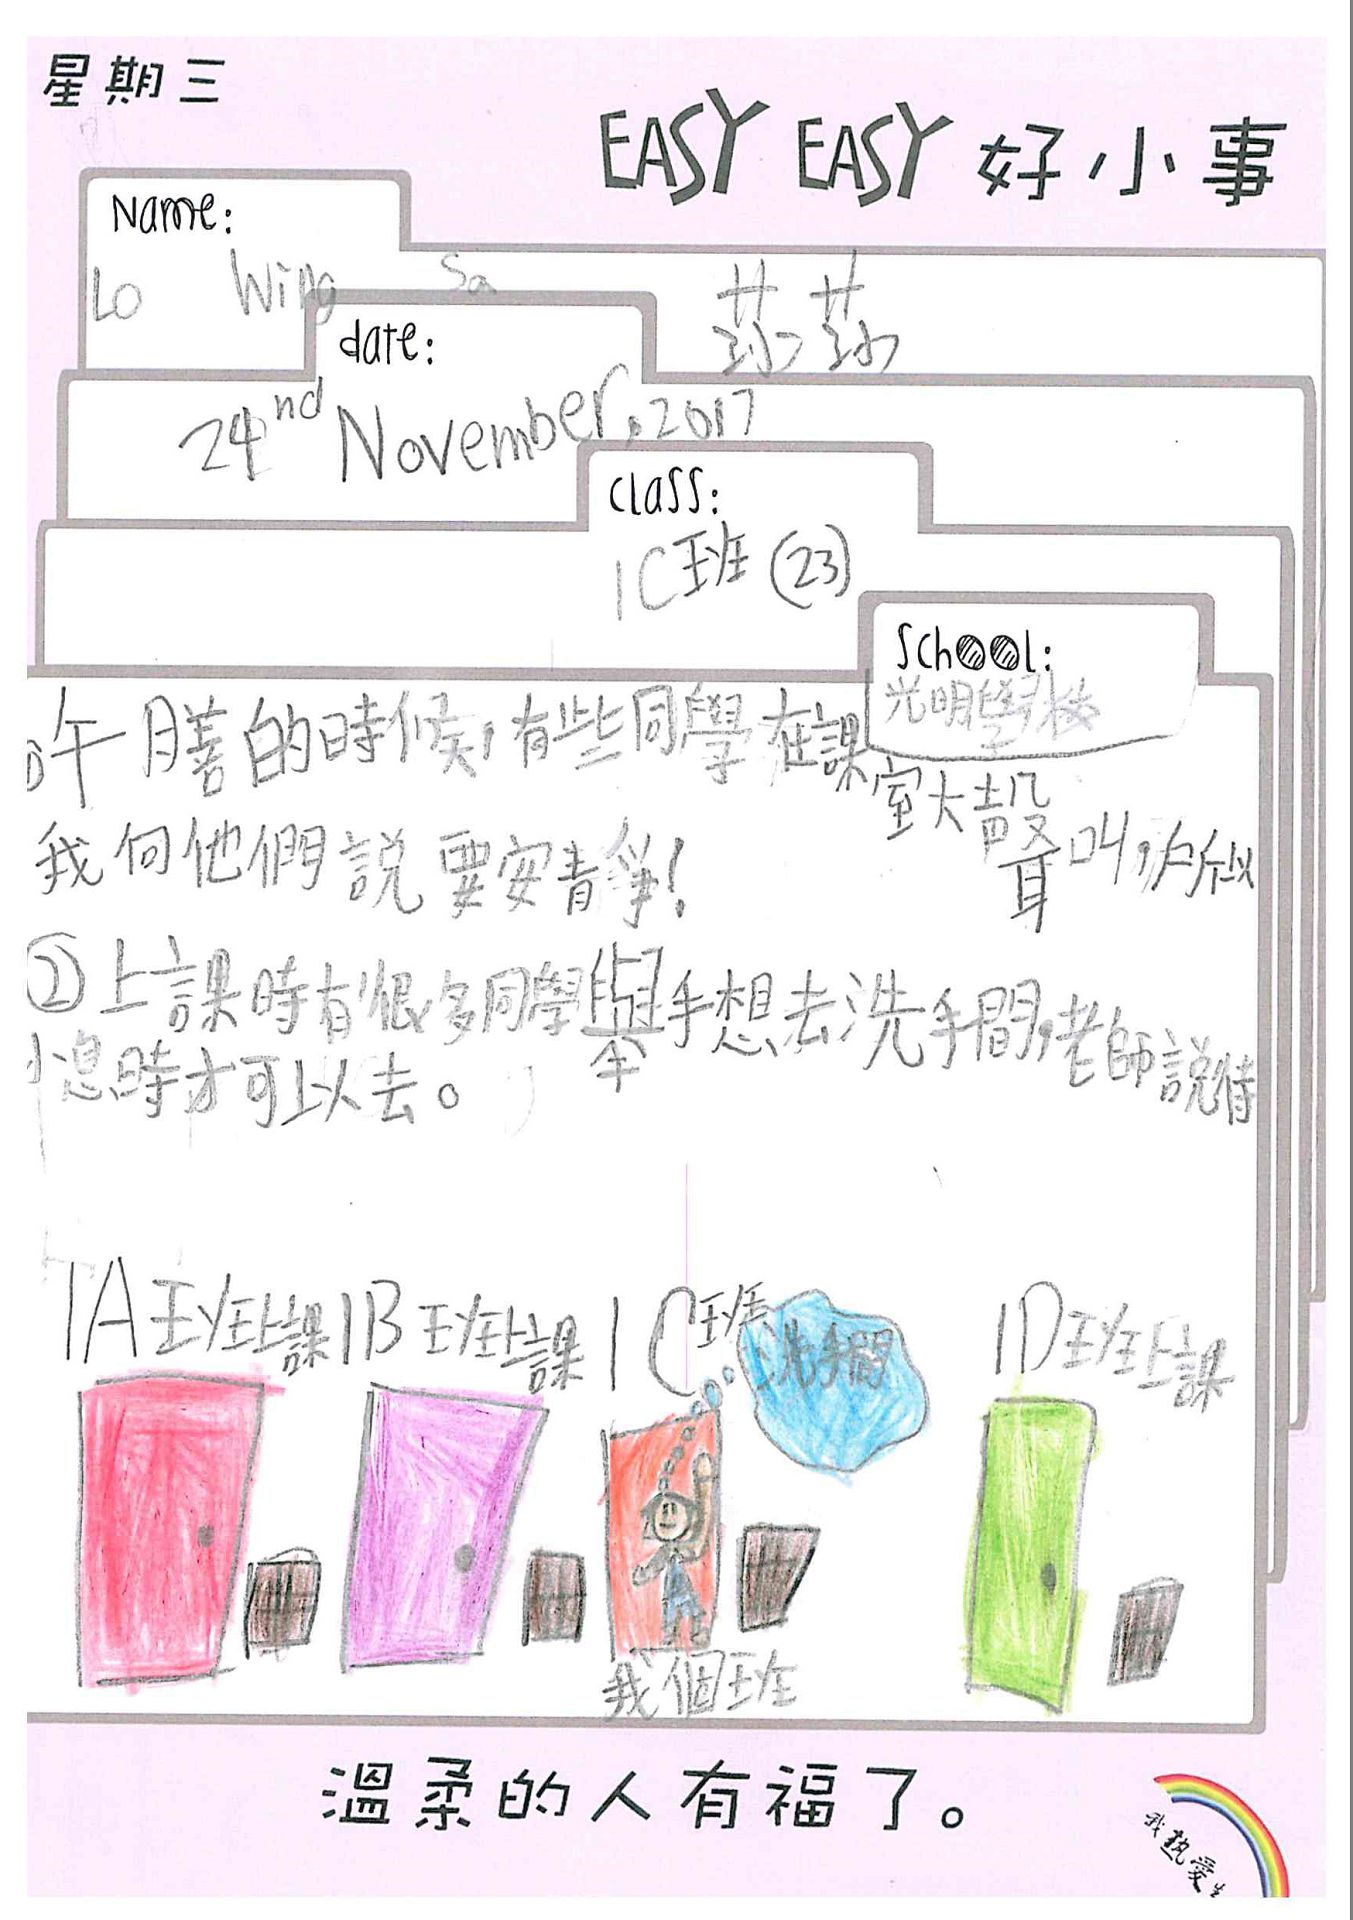 星期三
EASY EASY 好小事
Name:
Lo Wing Sa 莎莎
date:
24nd November,2017
class:
1C班 (23)
School:
光明學校
午膳的時候,有些同學在課室大聲叫,所以
我向他們說要安靜!
②上課時有很多同學舉手想去洗手間,老師說待
小息時才可以去。
1A班上課
1B班上課
1C班
洗手間
1D班上課
我個班
溫柔的人有福了。
我熱愛生